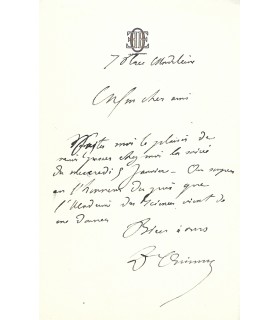 7 Place Madeleine
Enfin cher ami
Faites moi le plaisir de
venir passer chez moi la soirée
du mercredi 5 Janvier – On
en l'honneur du prix que
l'Académie des Sciences vient de
me donner
Bien à vous
D